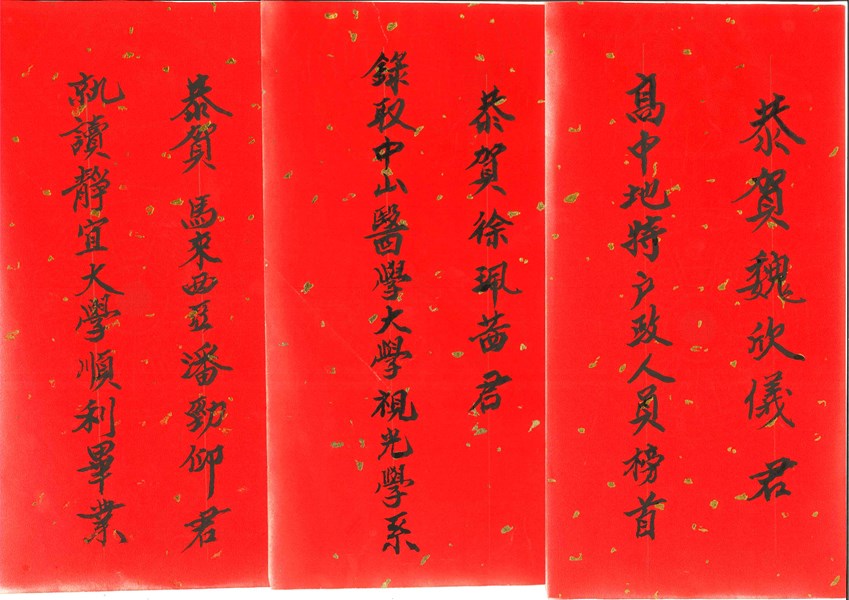 恭賀魏欣儀君
高中地特戶政人員榜首
恭賀徐珮茜君
錄取中山醫學大學視光學系
恭賀馬來西亞潘勁仰君
就讀靜宜大學順利畢業